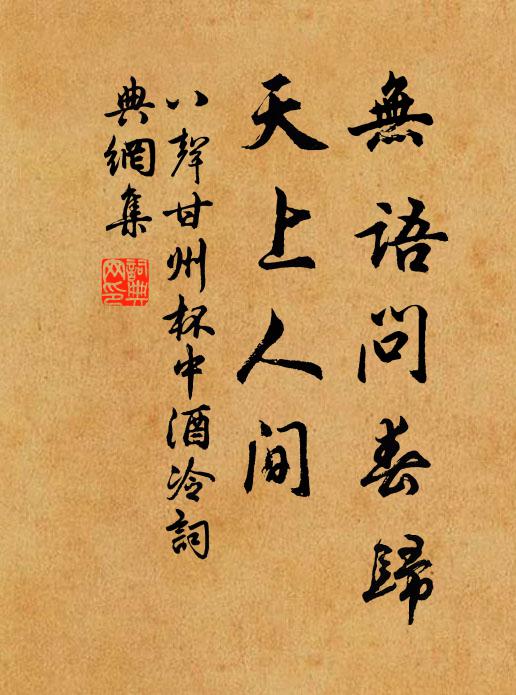 無語問春歸
天上人间
八聲甘州杯中酒冷詞
典網集
詞典网印